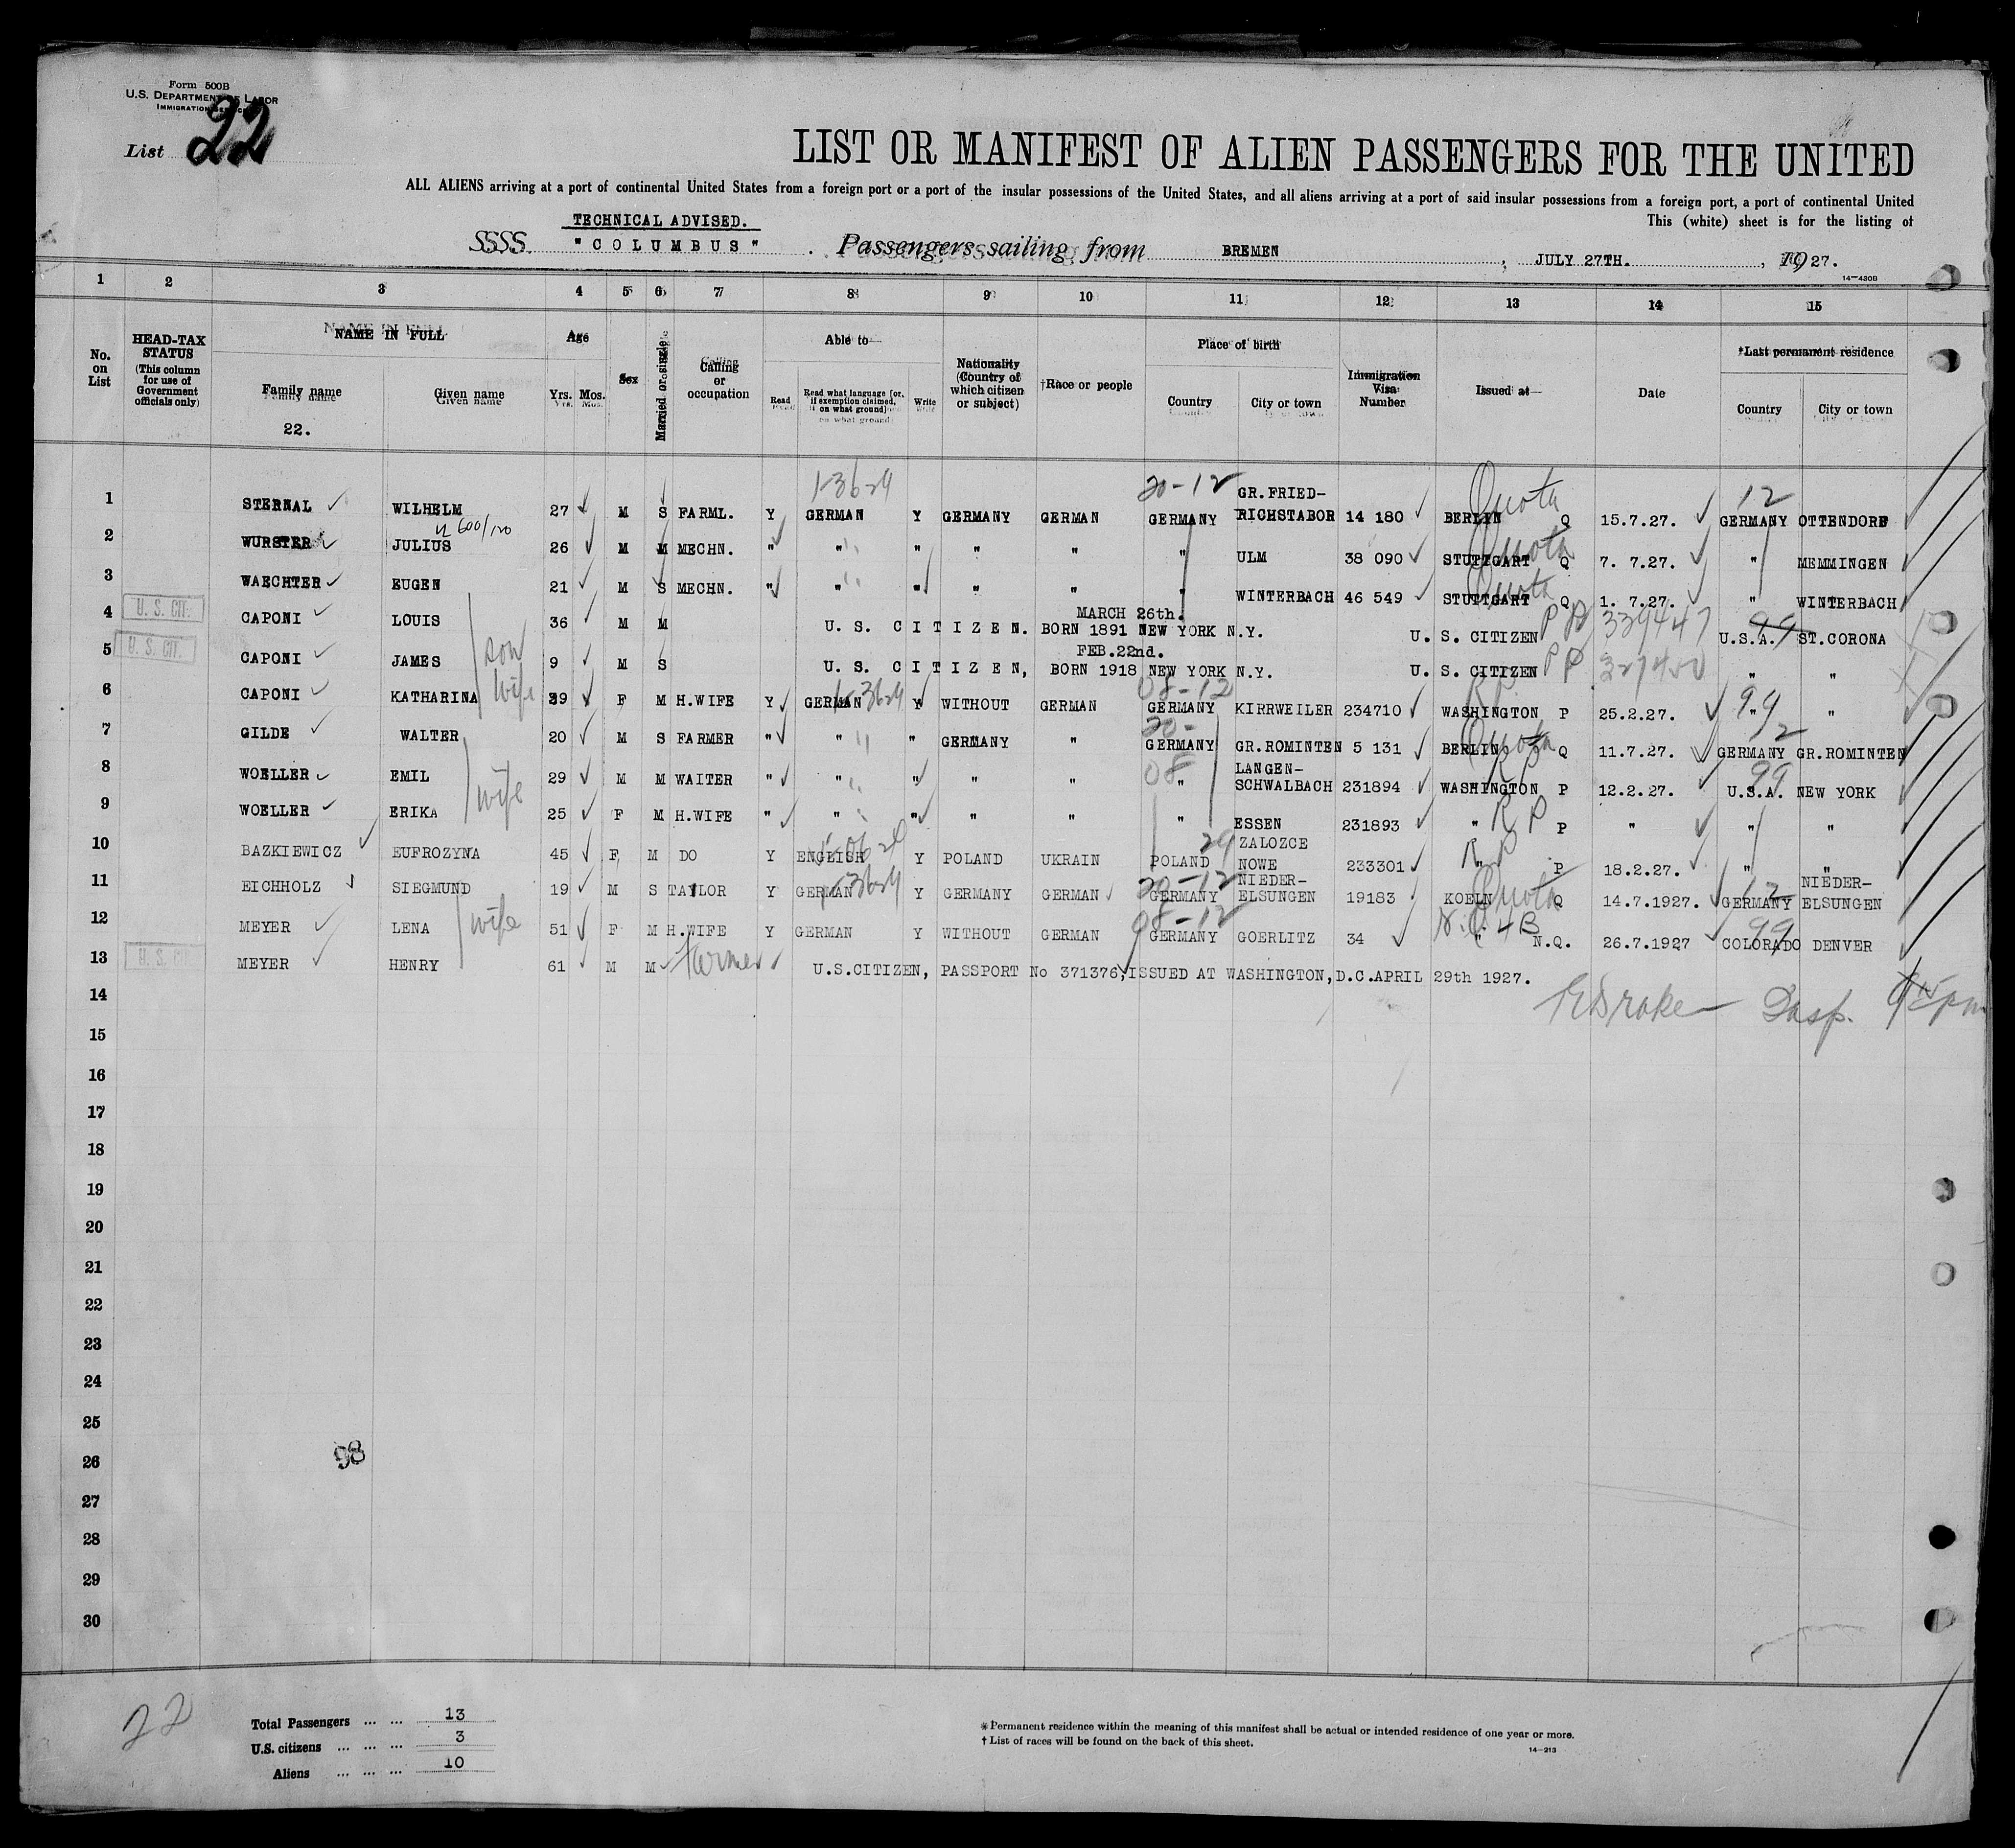 Form 500B
U.S. DEPARTMENT OF LABOR
IMMIGRATION SERVICE
List 22
LIST OR MANIFEST OF ALIEN PASSENGERS FOR THE UNITED
ALL ALIENS arriving at a port of continental United States from a foreign port or a port of the insular possessions of the United States, and all aliens arriving at a port of said insular possessions from a foreign port, a port of continental United
This (white) sheet is for the listing of
TECHNICAL ADVISED.
SS. "COLUMBUS" . Passengers sailing from BREMEN , JULY 27TH. , 1927.
14-430B
1 2 3 4 5 6 7 8 9 10 11 12 13 14 15
No. on List
HEAD-TAX STATUS (This column for use of Government officials only)
NAME IN FULL
Family name Given name
22.
Age
Yrs. Mos.
Sex
Married or single
Calling or occupation
Able to—
Read
Read what language [or, if exemption claimed, on what ground]
Write
Nationality (Country of which citizen or subject)
†Race or people
Place of birth
Country City or town
Immigration Visa Number
Issued at—
Date
*Last permanent residence
Country City or town
1-3624 20-12 GR.FRIED- Quota 12
1 STERNAL WILHELM 27 M S FARML. Y GERMAN Y GERMANY GERMAN GERMANY RICHSTABOR 14 180 BERLIN Q 15.7.27. GERMANY OTTENDORF
600/120
2 WURSTER JULIUS 26 M M MECHN. " " " " " " ULM 38 090 STUTTGART Q Quota 7. 7.27. " MEMMINGEN
3 WAECHTER EUGEN 21 M S MECHN. " " " " " WINTERBACH 46 549 STUTTGART Q Quota 1. 7.27. " WINTERBACH
MARCH 26th.
4 U. S. CIT. CAPONI LOUIS 36 M M U. S. CITIZEN. BORN 1891 NEW YORK N.Y. U. S. CITIZEN PP 339447 U.S.A. 99 ST.CORONA
FEB.22nd.
5 U. S. CIT. CAPONI JAMES son 9 M S U. S. CITIZEN, BORN 1918 NEW YORK N.Y. U. S. CITIZEN PP " "
08-12
6 CAPONI KATHARINA wife 39 F M H.WIFE Y GERMAN 1-3624 Y WITHOUT GERMAN GERMANY KIRRWEILER 234710 WASHINGTON P RP 25.2.27. " 99 "
20-
7 GILDE WALTER 20 M S FARMER " " " GERMANY " GERMANY GR.ROMINTEN 5 131 BERLIN Q Quota 11.7.27. GERMANY 12 GR.ROMINTEN
08 LANGEN- RP 99
8 WOELLER EMIL 29 M M WAITER " " " " " " SCHWALBACH 231894 WASHINGTON P 12.2.27. U.S.A. NEW YORK
9 WOELLER ERIKA wife 25 F M H.WIFE " " " " " " ESSEN 231893 " RP P " " "
29 ZALOZCE
10 BAZKIEWICZ EUFROZYNA 45 F M DO Y ENGLISH Y POLAND UKRAIN POLAND NOWE 233301 " RP P 18.2.27. " "
1-3624 20-12 NIEDER- Quota 12 NIEDER-
11 EICHHOLZ SIEGMUND 19 M S TAYLOR Y GERMAN Y GERMANY GERMAN GERMANY ELSUNGEN 19183 KOELN Q 14.7.1927. GERMANY ELSUNGEN
08-12 N.Q. 4B 99
12 MEYER LENA wife 51 F M H.WIFE Y GERMAN Y WITHOUT GERMAN GERMANY GOERLITZ 34 " N.Q. 26.7.1927 COLORADO DENVER
13 U. S. CIT. MEYER HENRY 61 M M Farmer U.S.CITIZEN, PASSPORT No 371376, ISSUED AT WASHINGTON,D.C.APRIL 29th 1927.
14 Drake Insp.
15
16
17
18
19
20
21
22
23
24
25
26 98
27
28
29
30
22
Total Passengers ... ... 13
U.S. citizens ... ... ... 3
Aliens ... ... ... 10
* Permanent residence within the meaning of this manifest shall be actual or intended residence of one year or more.
† List of races will be found on the back of this sheet.
14-213